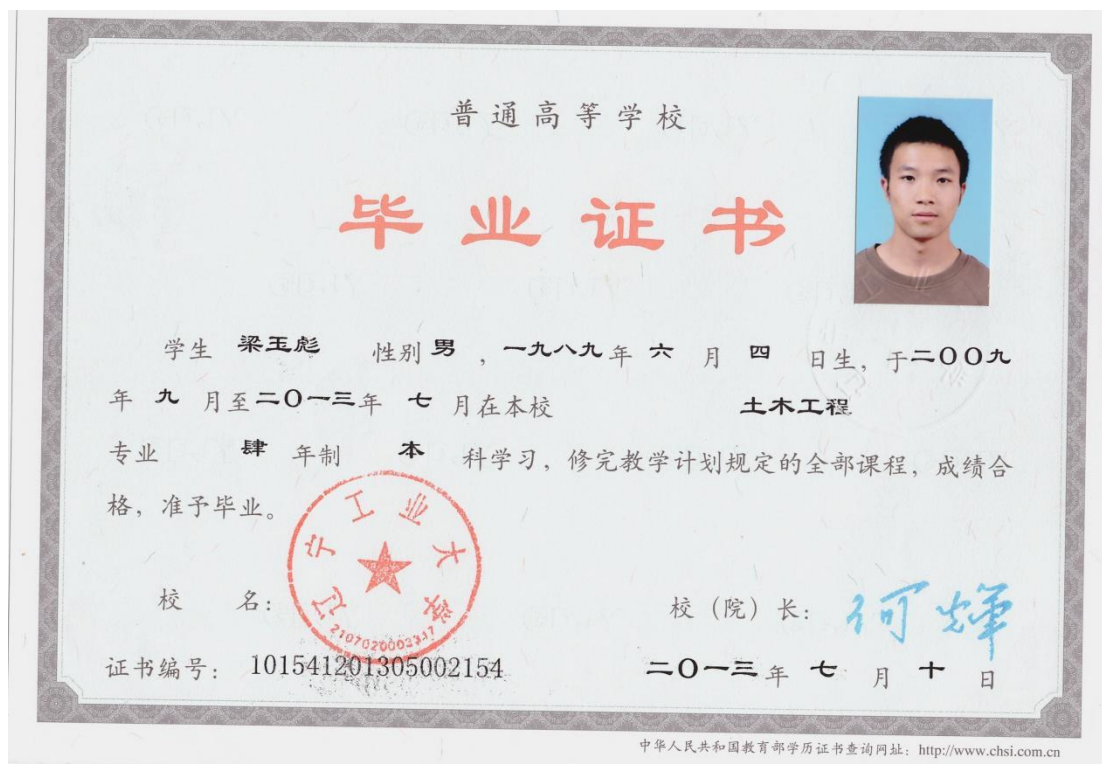 普通高等学校
毕业证书
学生 梁玉彪 性别 男 ，一九八九年 六 月 四 日生，于二〇〇九
年 九 月至二〇一三年 七 月在本校 土木工程
专业 肆 年制 本 科学习，修完教学计划规定的全部课程，成绩合
格，准予毕业。
辽宁工业大学
2107020002317
校 名： 校（院）长： 何辉
证书编号： 101541201305002154 二〇一三年 七 月 十 日
中华人民共和国教育部学历证书查询网址：http://www.chsi.com.cn